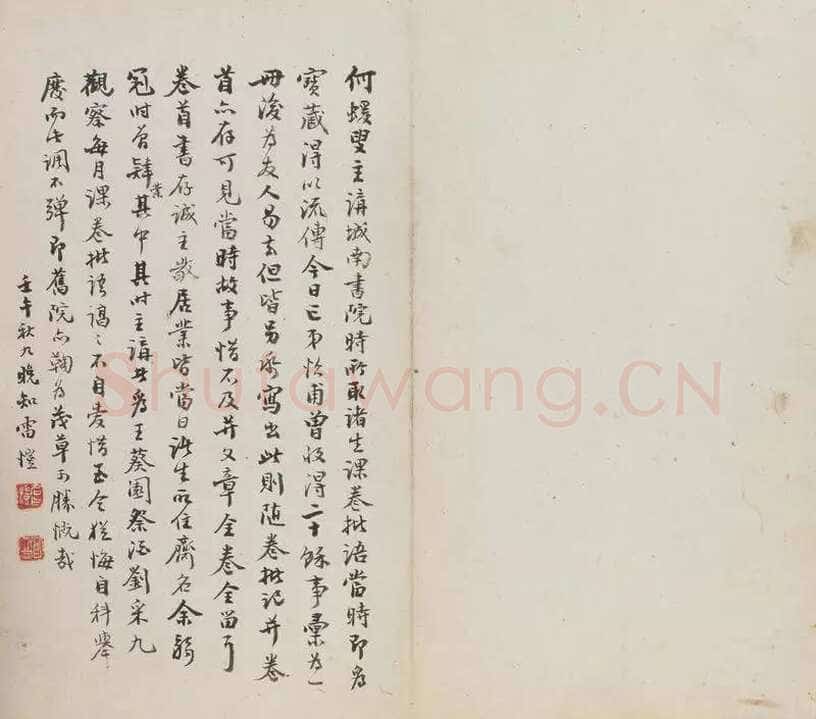 何蝯叟主講城南書院時所取諸生課卷批語當時即為
寶藏得以流傳今日亡弟恢甫曾收得二十餘事彙為一
冊後為友人易去但皆另紙寫出此則隨卷批記并卷
首亦存可見當時故事惜不及并文章全卷全留耳
卷首書存誠主敬居業皆當日諸生所住齋名余弱
冠時曾肄業其中其時主講者為王葵園祭酒劉采九
觀察每月課卷批語謁謁不自愛惜至今猶悔自科舉
廢而此調不彈即舊院亦鞠為茂草可勝慨哉
壬午秋九晚知雷愷
Shufawang.CN